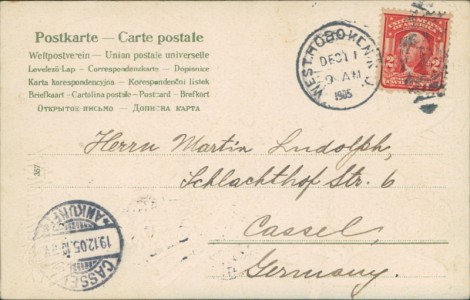 Postkarte — Carte postale
Weltpostverein — Union postale universelle
Levelező-Lap — Correspondenzkarte — Dopisnice
Karta korespondencyjna — Korespondenční lístek
Briefkaart — Cartolina postale — Postcard — Brefkort
Открытое письмо — Дописна карта
WEST HOBOKEN, N.J.
DEC 11
9-AM
1905
2 2
Herrn Martin Ludolph,
Schlachthof Str. 6
Cassel,
Germany.
357
CASSEL
19.12.05
ANKUNFT